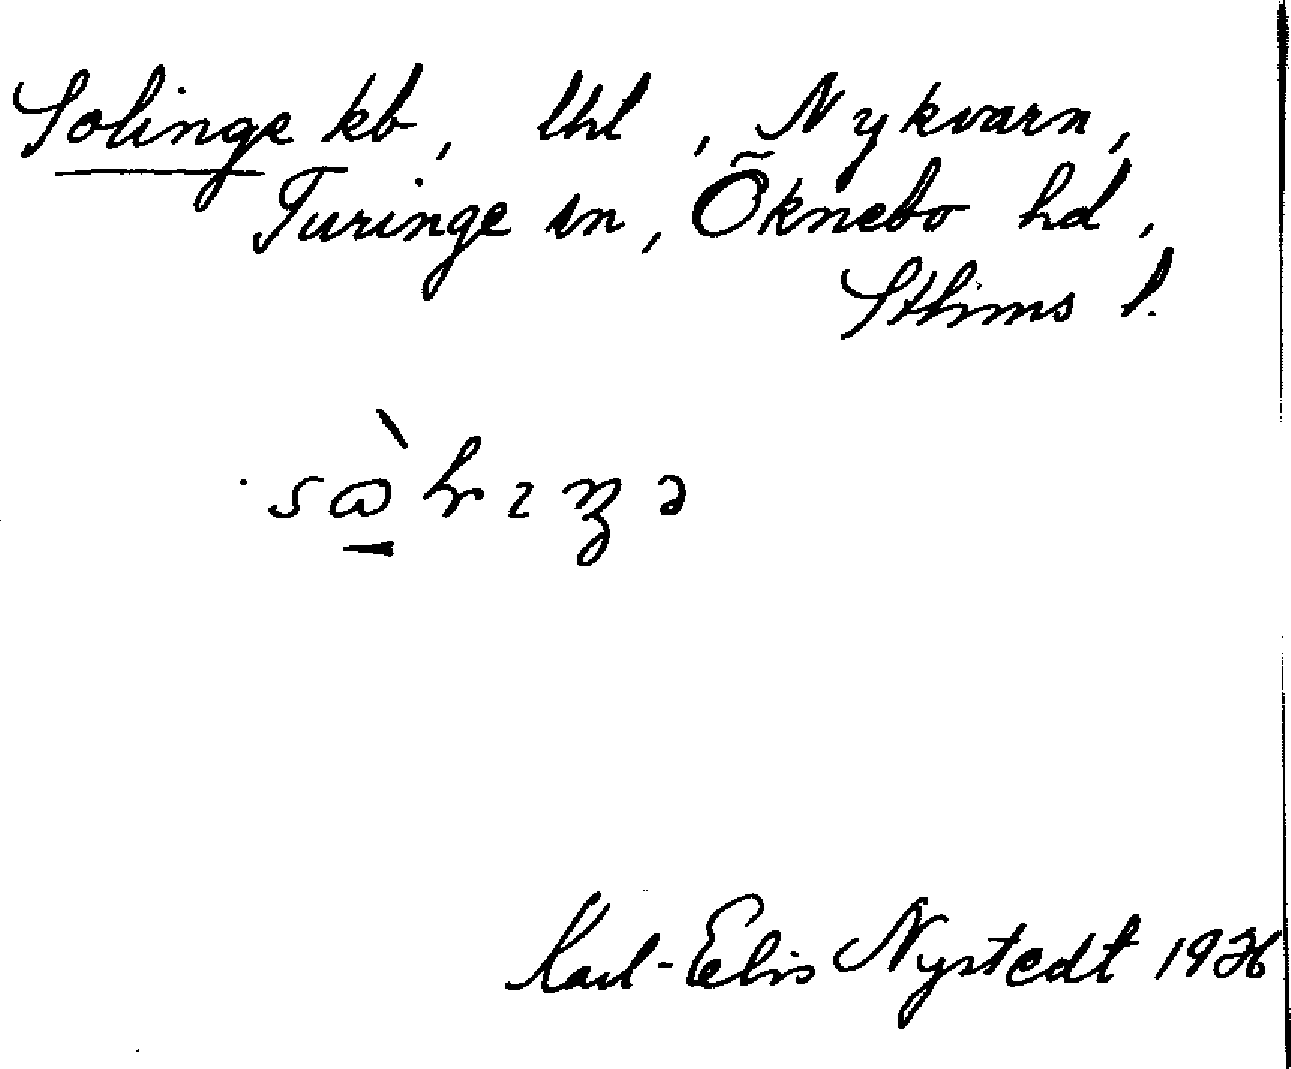 Solinge kb, lhl, Nykvarn,
Turinge sn, Öknebo hd,
Sthlms l.
Karl-Elis Nystedt 1936